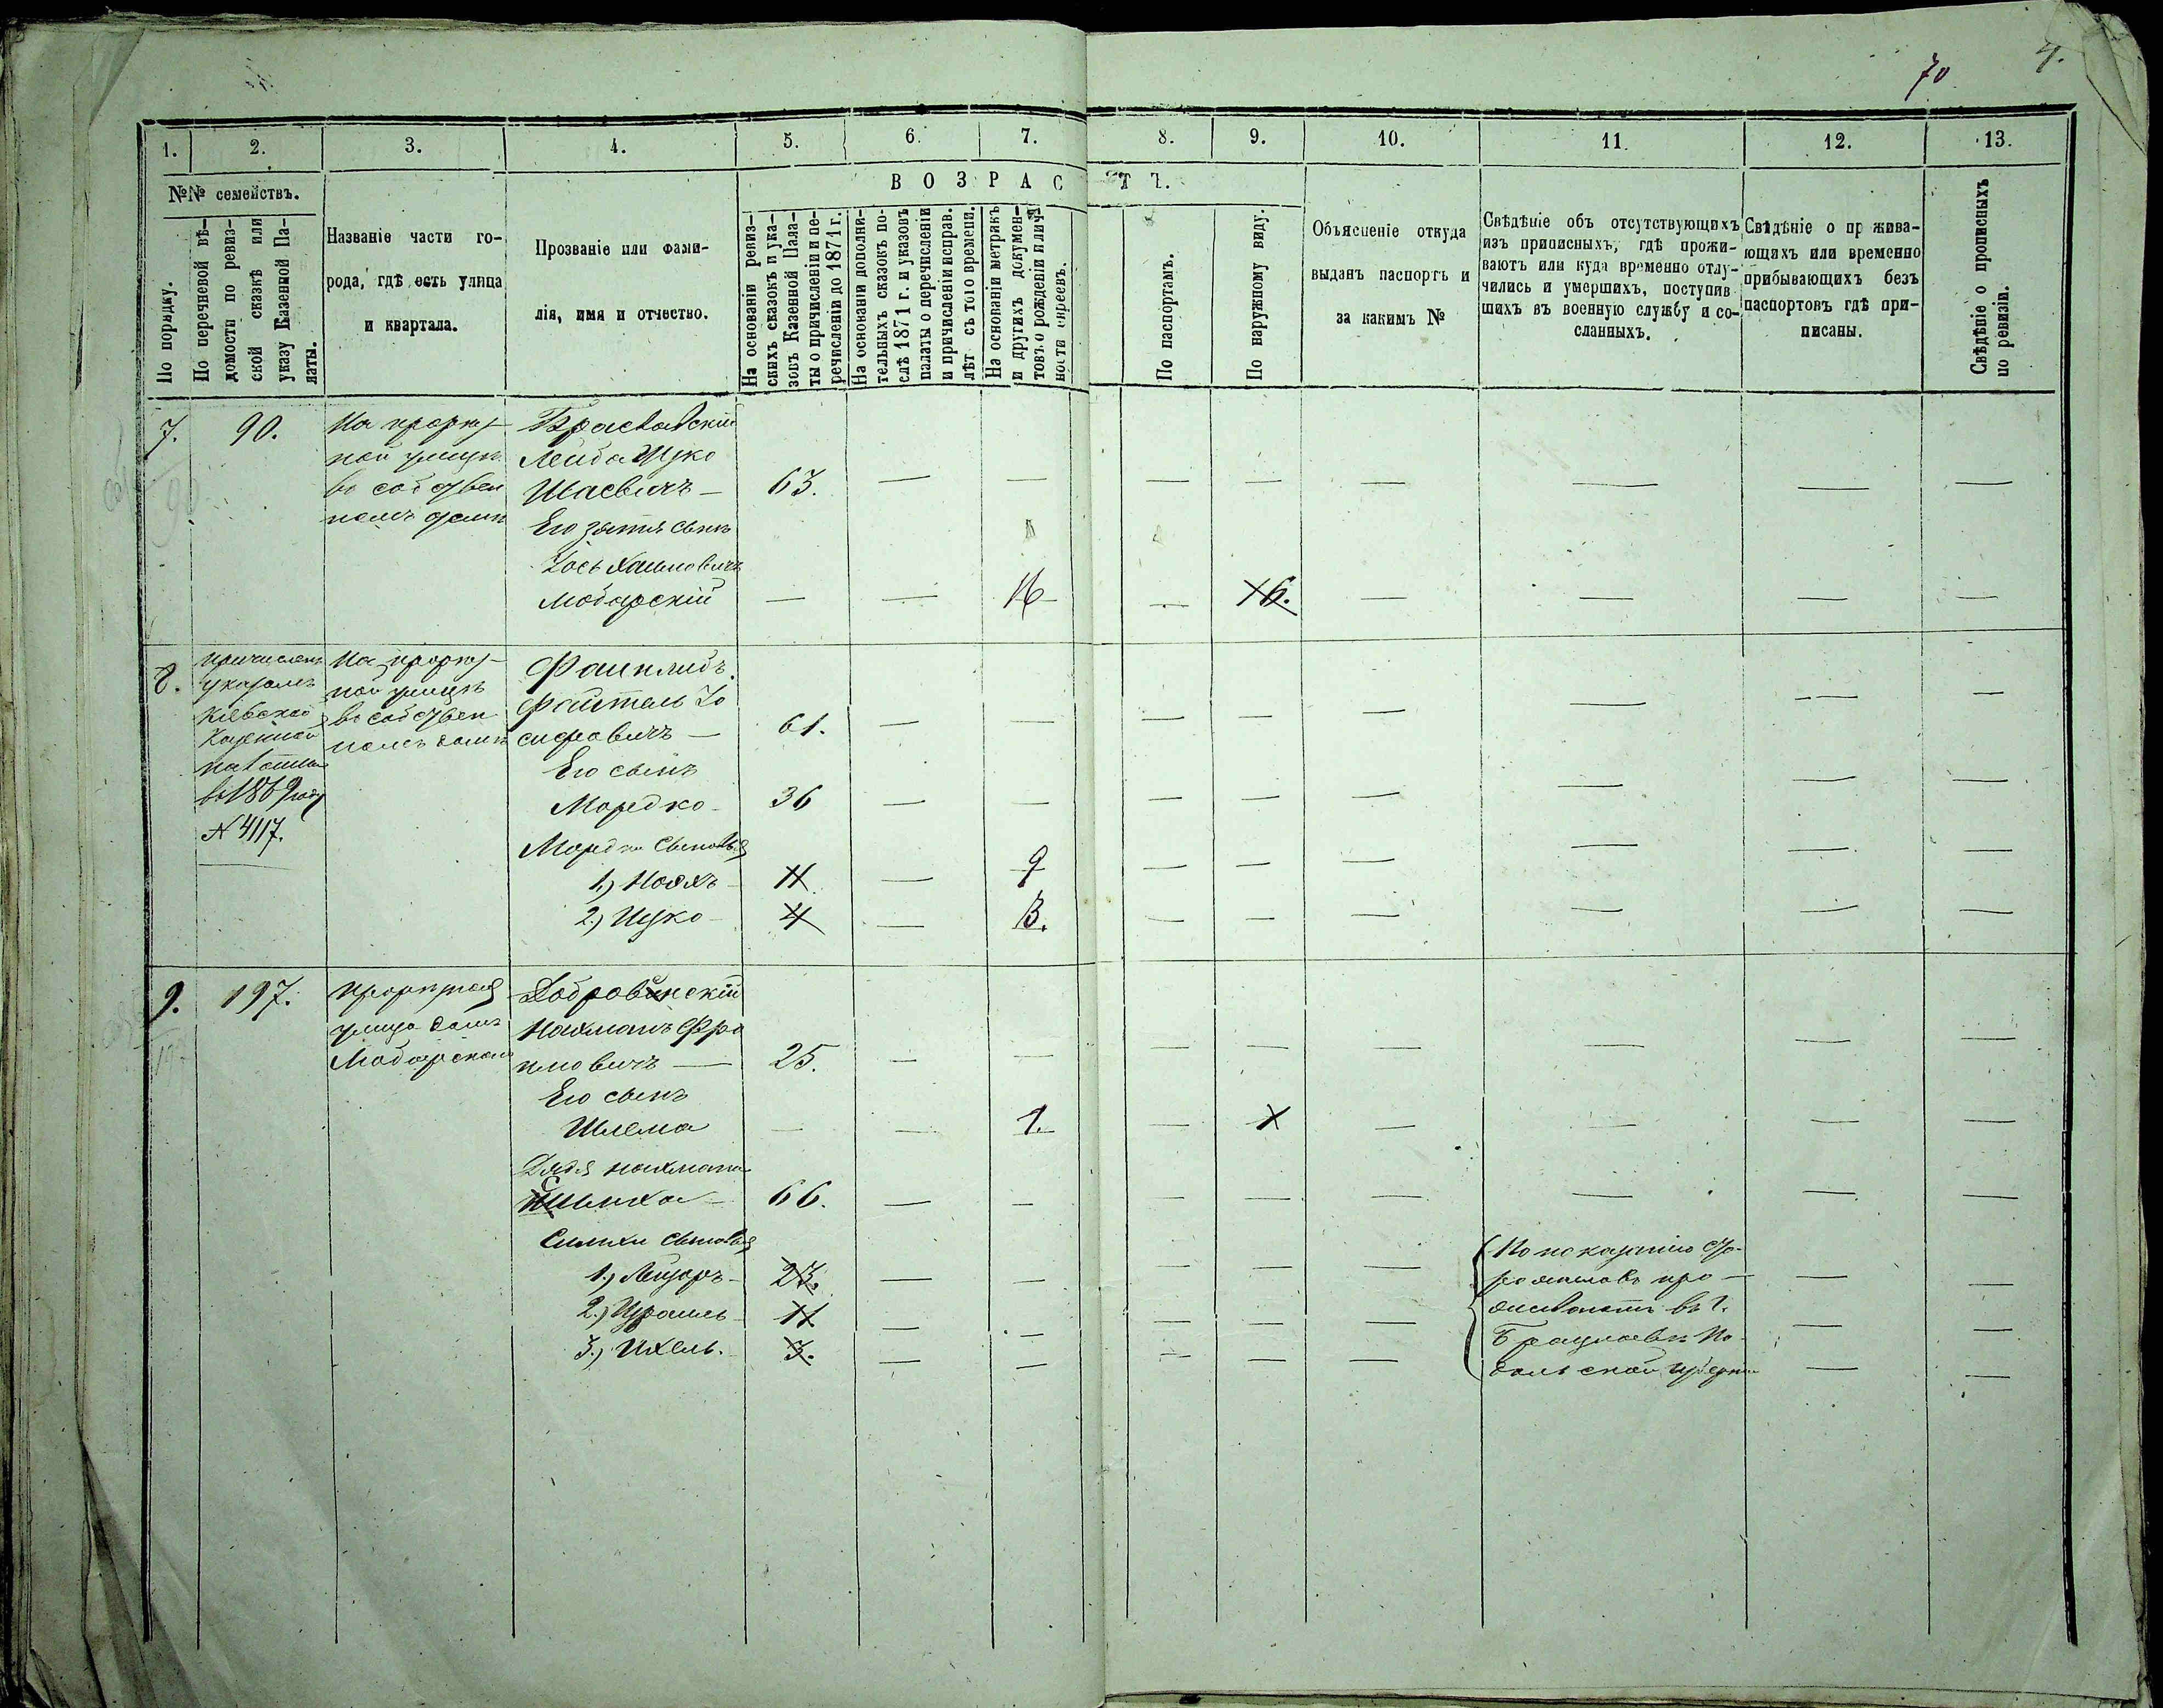 70
4.
1.
2.
3.
4.
5.
6.
7.
8.
9.
10.
11.
12.
13.
№№ семействъ.
ВОЗРАСТЪ.
По порядку.
По перечневой вѣ-
домости по ревиз-
ской сказкѣ или
указу Казенной Па-
латы.
Названіе части го-
рода, гдѣ есть улица
и квартала.
Прозваніе или фами-
лія, имя и отчество.
На основаніи ревиз-
скихъ сказокъ и ука-
зовъ Казенной Пала-
ты о причисленіи и пе-
речисленіи до 1871 г.
На основаніи дополни-
тельныхъ сказокъ по-
слѣ 1871 г. и указовъ
палаты о перечисленіи
и причисленіи исправ.
лѣт съ того времени.
На основаніи метрикъ
и другихъ докумен-
товъ о рожденіи и лич-
ности евреевъ.
По паспортамъ.
По наружному виду.
Объясненіе откуда
выданъ паспортъ и
за какимъ №
Свѣдѣніе объ отсутствующихъ
изъ приписныхъ, гдѣ прожи-
ваютъ или куда временно отлу-
чились и умершихъ, поступив
шихъ въ военную службу и со-
сланныхъ.
Свѣдѣніе о пр жива-
ющихъ или временно
прибывающихъ безъ
паспортовъ гдѣ при-
писаны.
Свѣдѣніе о прописныхъ
по ревизіи.
7.
90.
ной улицѣ
въ собствен
номъ домѣ
Браславскій
Лейба Ицко
Шаевичъ — 63.
Его зятя сынъ
Іось Хаимовичъ
Моборскій — — 16 — 16.
8.
Причисленъ
указомъ
Кіевской
Казенной
палаты
въ 1869 году
№ 4117.
ной улицѣ
въ собствен
номъ домѣ
Файтель Іо
сифовичъ — 61.
Его сынъ
Мордко — 36
Мордки сыновья
1.) Ноахъ — 11 — 9
2.) Ицко — 4 — 3.
9.
197.
улица домъ
Добровинскій
Нахманъ Фро
имовичъ — 25.
Его сынъ
Шлема — — 1. — 1
Дядя Нахмана
Симха — 66.
Симхи сыновья
1.) Лейзоръ — 23.
2.) Израиль — 11
3.) Ихель. 3.
По показанію ста-
ростовъ про-
живаютъ въ г.
Брацлавѣ По-
дольской губерніи